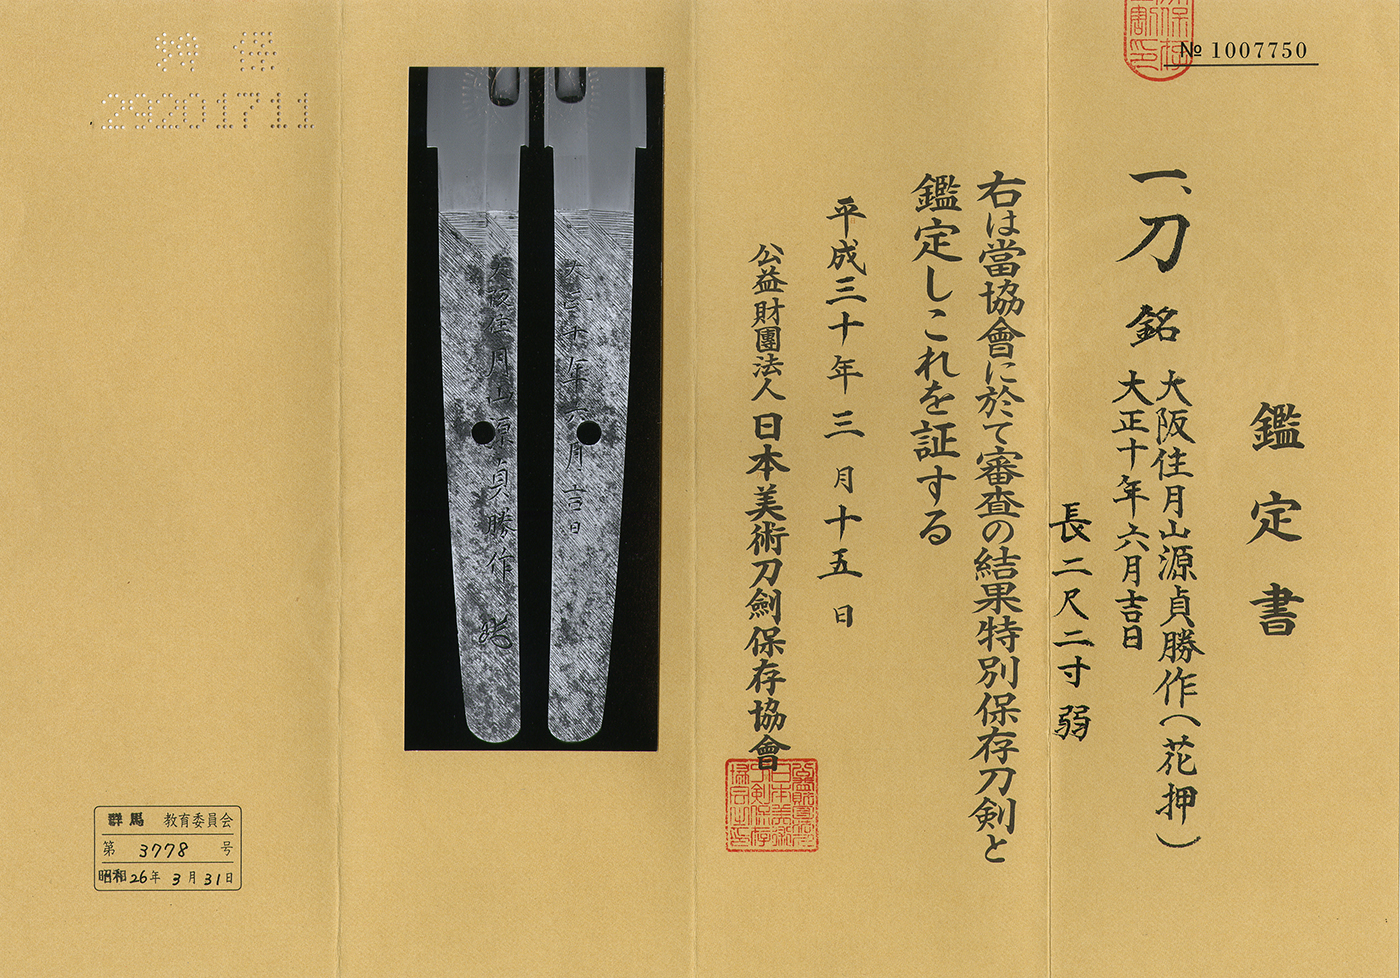 № 1007750
鑑定書
一、刀 銘 大阪住月山源貞勝作(花押)
大正十年六月吉日
長二尺二寸弱
右は當協會に於て審査の結果特別保存刀剣と
鑑定しこれを証する
平成三十年三月十五日
公益財團法人日本美術刀劍保存協會
大正十年六月吉日
大阪住月山源貞勝作
29201711
群馬 教育委員会
第 3778 号
昭和26年3月31日